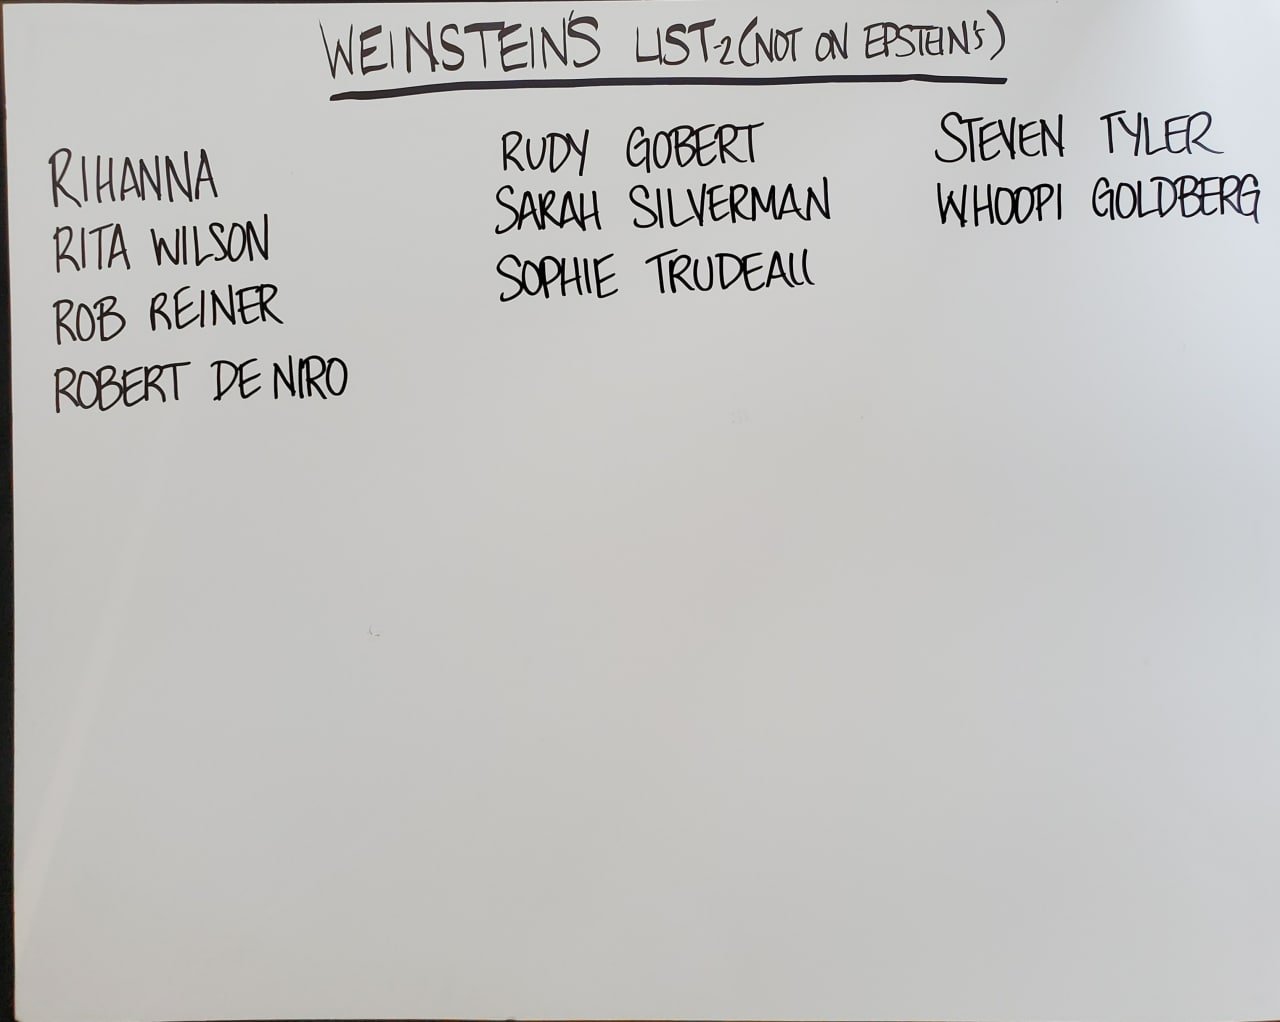 WEINSTEIN'S LIST-2 (NOT ON EPSTEIN'S)
RIHANNA
RITA WILSON
ROB REINER
ROBERT DE NIRO
RUDY GOBERT
SARAH SILVERMAN
SOPHIE TRUDEAU
STEVEN TYLER
WHOOPI GOLDBERG